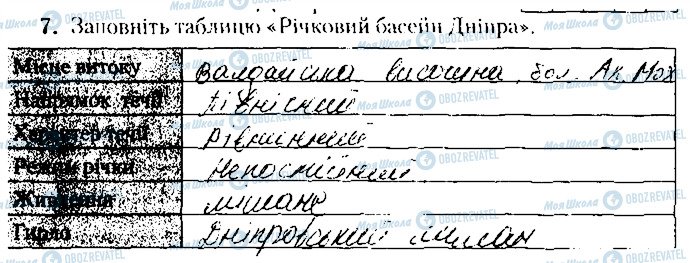 7. Заповніть таблицю «Річковий басейн Дніпра».
Місце витоку Валдайська височина, бол. Ак. Мох
Напрямок течії Північний
Характер течії Рівнинний
Режим річки Непостійний
Живлення мішане
Гирло Дніпровський лиман